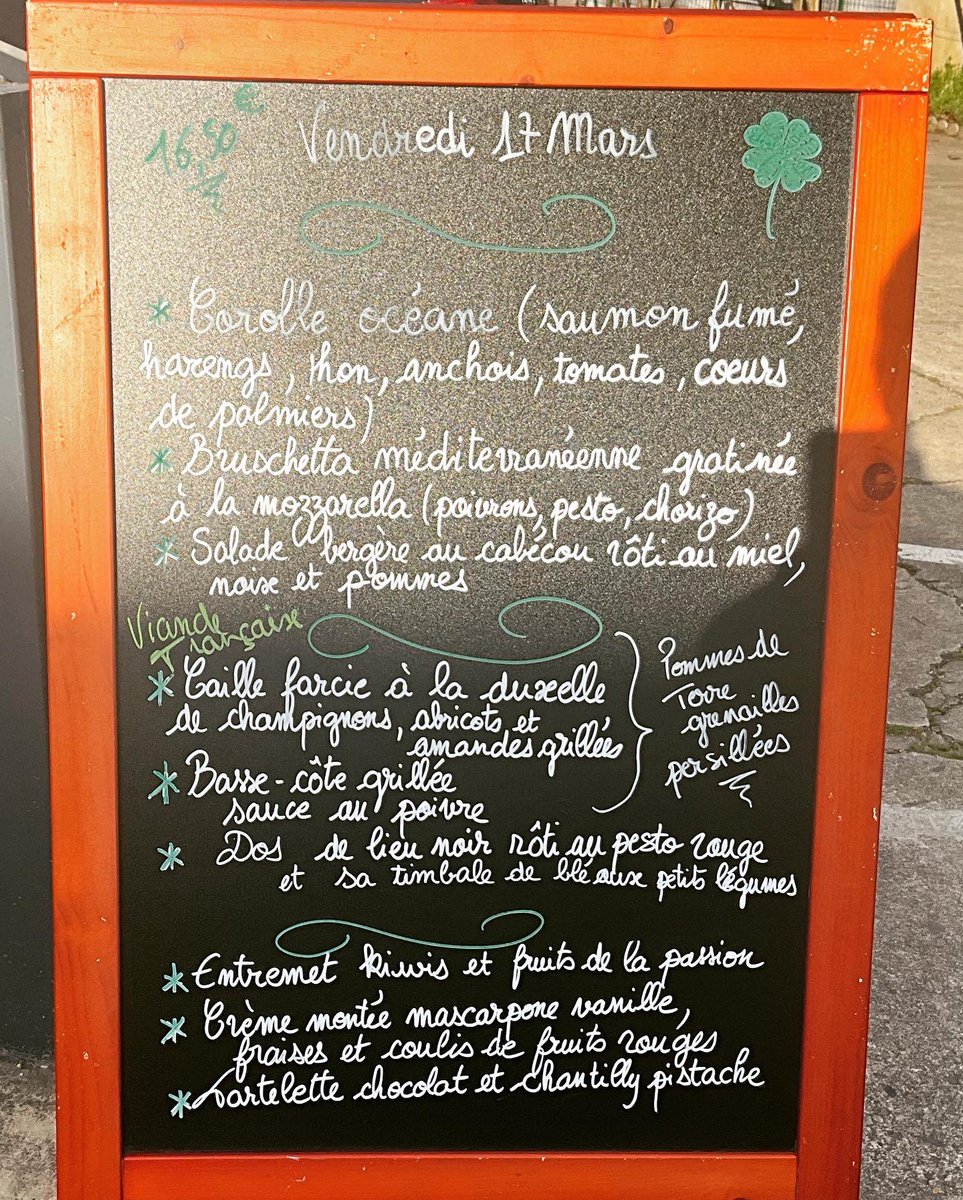 16,50 €
Vendredi 17 Mars
* Corolle océane (saumon fumé,
harengs, thon, anchois, tomates, coeurs
de palmiers)
* Bruschetta méditerranéenne gratinée
à la mozzarella (poivrons, pesto, chorizo)
* Salade bergère au cabécou rôti au miel,
noix et pommes
Viande
Française
* Caille farcie à la duxelle
de champignons, abricots et
amandes grillées
* Basse-côte grillée
sauce au poivre
Pommes de
Terre
grenailles
persillées
* Dos de lieu noir rôti au pesto rouge
et sa timbale de blé aux petits légumes
* Entremet kiwis et fruits de la passion
* Crème montée mascarpone vanille,
fraises et coulis de fruits rouges
* Tartelette chocolat et chantilly pistache